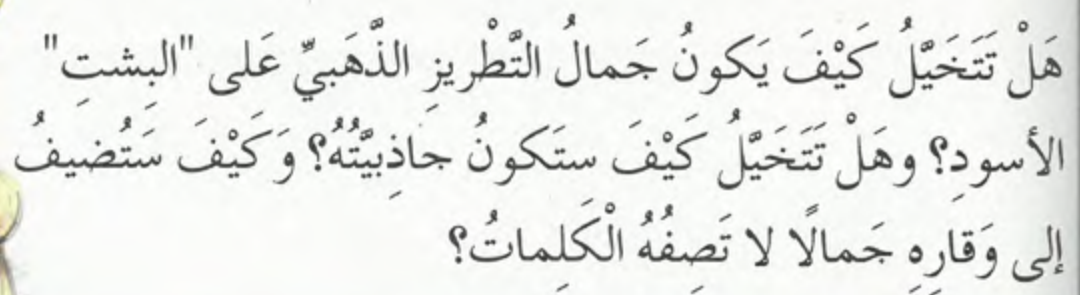 هَلْ تَتَخَيَّلُ كَيْفَ يَكونُ جَمالُ التَّطْريزِ الذَّهَبيِّ عَلى "البِشتِ"
الأسودِ؟ وهَلْ تَتَخَيَّلُ كَيْفَ ستَكونُ جاذِبيَّتُهُ؟ وَكَيْفَ سَتُضيفُ
إلى وَقارِهِ جَمالًا لا تَصِفُهُ الْكَلِماتُ؟